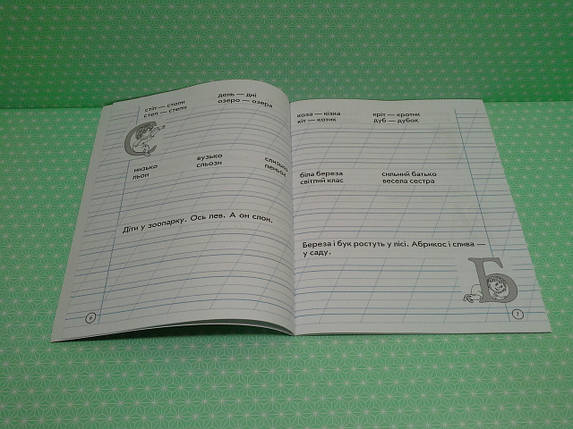 стіл — столи
степ — степи
день — дні
озеро — озера
С
низько
льон
вузько
сльози
слизько
пеньок
Діти у зоопарку. Ось лев. А он слон.
6
коза — кізка
кіт — котик
кріт — кротик
дуб — дубок
біла береза
світлий клас
сильний батько
весела сестра
Береза і бук ростуть у лісі. Абрикос і слива —
у саду.
Б
7